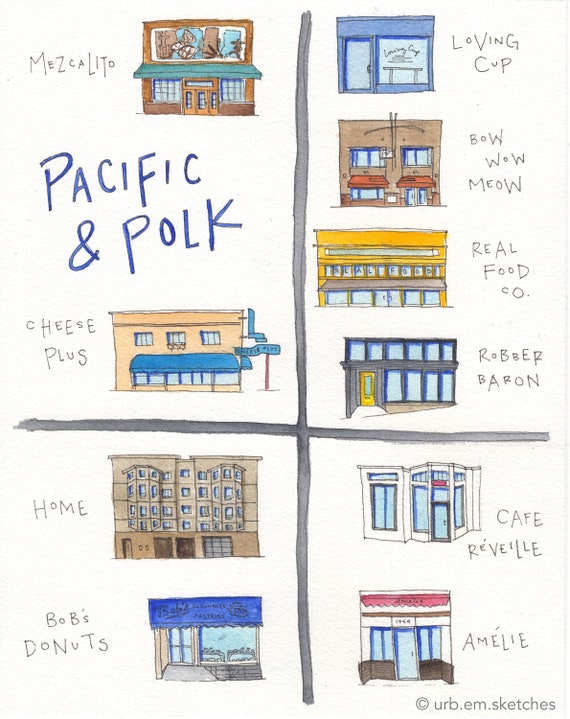 MEZCALITO
LOVING
CUP
Loving Cup
BOW
WOW
MEOW
PACIFIC
& POLK
REAL
FOOD
CO.
REAL FOOD
CHEESE
PLUS
CHEESE PLUS
ROBBER
BARON
HOME
CAFE
RÉVEILLE
BOB'S
DONUTS
Bob's
PASTRIES
Amelie
AMÉLIE
© urb.em.sketches